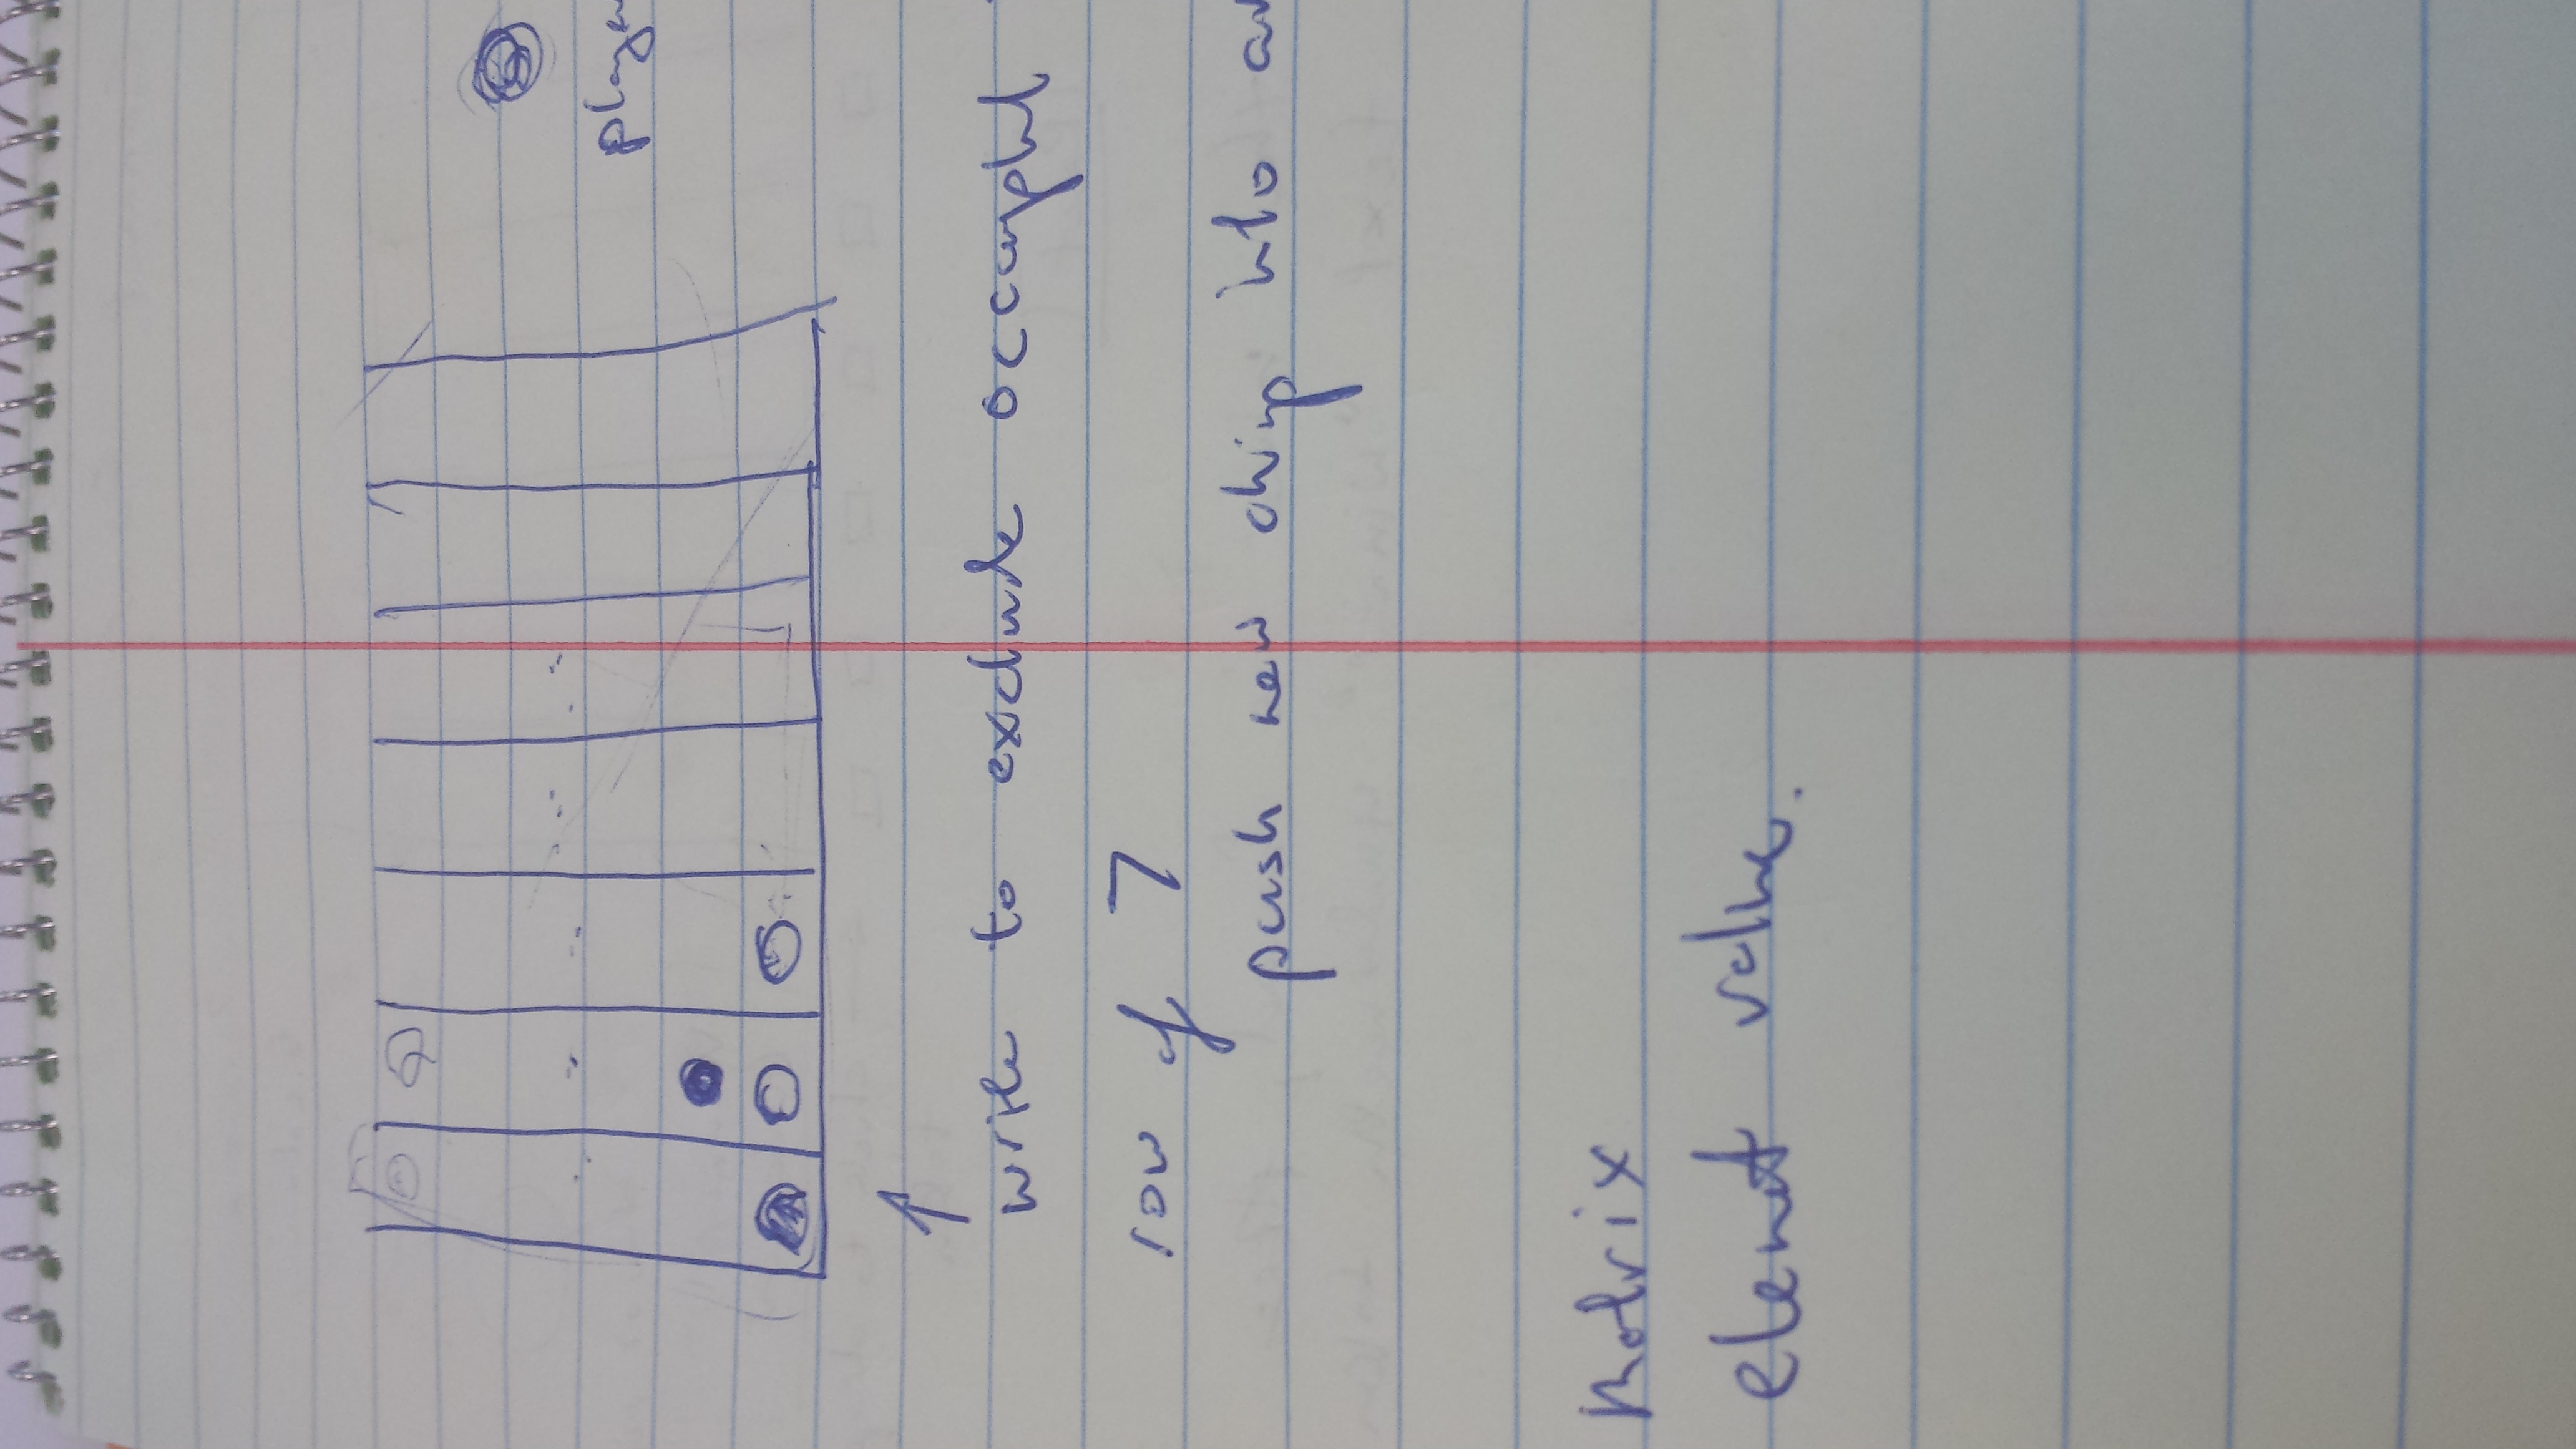 player
write to exclude occupied
row of 7
push new chip into
Matrix
element value.